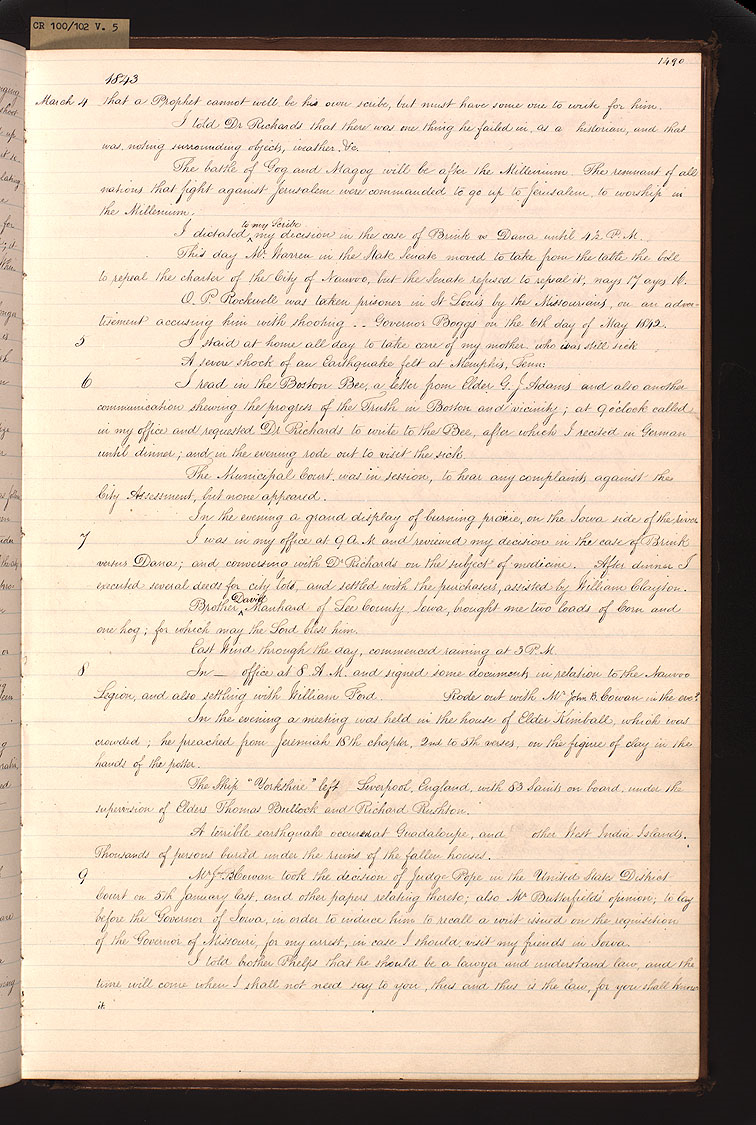 CR 100/102 V. 5
1490
1843
March 4 that a Prophet cannot well be his own scribe, but must have some one to write for him.
I told Dr Richards that there was one thing he failed in, as a historian, and that
was, noting surrounding objects, weather, &c.
The battle of Gog and Magog will be after the Millenium. The remnant of all
nations that fight against Jerusalem were commanded to go up to Jerusalem, to worship in
the Millenium.
to my Scribe
I dictated ^ my decision in the case of Brink vs Dana until 4½ P.M.
This day Mr. Warren in the State Senate moved to take from the table the bill
to repeal the charter of the City of Nauvoo, but the Senate refused to repeal it, nays 17 ayes 16.
O. P. Rockwell was taken prisoner in St Louis by the Missourians, on an adver-
tisement accusing him with shooting -- Governor Boggs on the 6th day of May 1842.
5 I staid at home all day to take care of my mother who was still sick
A severe shock of an Earthquake felt at Memphis, Tenn:
6 I read in the Boston Bee, a letter from Elder G. J. Adams and also another
communication shewing the progress of the Truth in Boston and vicinity; at 9 o'clock called
in my office and requested Dr Richards to write to the Bee, after which I recited in German
until dinner; and in the evening rode out to visit the sick.
The Municipal Court, was in session, to hear any complaints against the
City Assessment, but none appeared.
In the evening a grand display of burning prairie, on the Iowa side of the river
7 I was in my office at 9 A.M. and reviewed my decision in the case of Brink
versus Dana; and conversing with Dr Richards on the subject of medicine. After dinner I
executed several deeds for city lots, and settled with the purchasers, assisted by William Clayton.
David
Brother ^ Manhard of Lee County, Iowa, brought me two loads of Corn and
one hog; for which may the Lord bless him.
East Wind through the day, commenced raining at 3 P.M.
8 In — office at 8 A.M. and signed some documents in relation to the Nauvoo
Legion, and also settling with William Ford. Rode out with Mr. John B. Cowan in the eve?
In the evening a meeting was held in the house of Elder Kimball, which was
crowded; he preached from Jeremiah 18th chapter, 2nd to 5th verses, on the figure of clay in the
hands of the potter.
The Ship "Yorkshire" left Liverpool, England, with 83 Saints on board, under the
supervision of Elders Thomas Bullock and Richard Rushton.
A terrible earthquake occured at Guadaloupe, and other West India Islands.
Thousands of persons buried under the ruins of the fallen houses.
9 Mr Jno. B Cowan took the decision of Judge Pope in the United States District
Court on 5th January last, and other papers relating thereto; also Mr Butterfields opinion, to lay
before the Governor of Iowa, in order to induce him to recall a writ issued on the requisition
of the Governor of Missouri, for my arrest, in case I should visit my friends in Iowa.
I told brother Phelps that he should be a lawyer and understand law, and the
time will come when I shall not need say to you, thus and thus is the law, for you shall know
it.